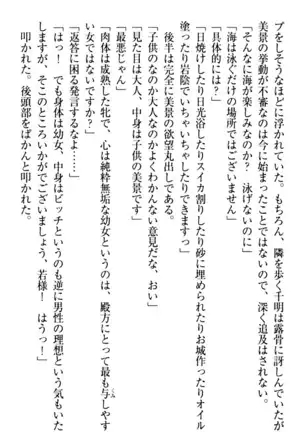 プをしそうなほどに浮かれていた。もちろん、隣を歩く千明は露骨に訝しんでいたが
美景の挙動が不審なのは今に始まったことではないので、深く追及はされない。
「そんなに海が楽しみなのか？　泳げないのに」
「海は泳ぐだけの場所ではございません」
「具体的には？」
「日焼けしたり日光浴したりスイカ割りしたり砂に埋められたりお城作ったりオイル
塗ったり岩陰でいちゃいちゃしたりできますっ」
　後半は完全に美景の欲望丸出しである。
「子供のなのか大人なのかよくわかんない意見だな、おい」
「見た目は大人、中身は子供の美景です」
「最悪じゃん」
「肉体は成熟した牝で、心は純粋無垢な幼女というのは、殿方にとって最も与しやす
い女ではないですか？」
「返答に困る発言するなよ……」
「はっ！　でも身体は幼女、中身はビッチというのも逆に男性の理想という気もいた
しますが、そこのところいかがでしょう、若様！　はうっ！」
　叩かれた。後頭部をぱかんと叩かれた。